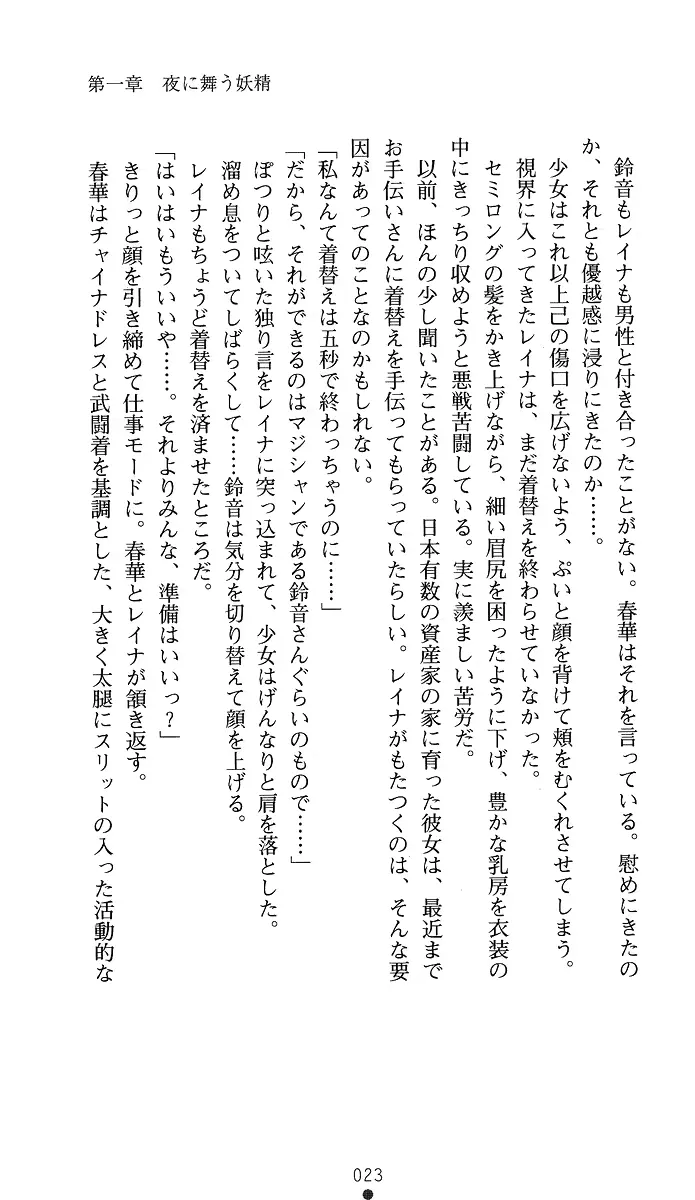 第一章　夜に舞う妖精
　鈴音もレイナも男性と付き合ったことがない。春華はそれを言っている。慰めにきたの
か、それとも優越感に浸りにきたのか……。
　少女はこれ以上己の傷口を広げないよう、ぷいと顔を背けて頬をむくれさせてしまう。
　視界に入ってきたレイナは、まだ着替えを終わらせていなかった。
　セミロングの髪をかき上げながら、細い眉尻を困ったように下げ、豊かな乳房を衣装の
中にきっちり収めようと悪戦苦闘している。実に羨ましい苦労だ。
　以前、ほんの少し聞いたことがある。日本有数の資産家の家に育った彼女は、最近まで
お手伝いさんに着替えを手伝ってもらっていたらしい。レイナがもたつくのは、そんな要
因があってのことなのかもしれない。
「私なんて着替えは五秒で終わっちゃうのに……」
「だから、それができるのはマジシャンである鈴音さんぐらいのもので……」
　ぽつりと呟いた独り言をレイナに突っ込まれて、少女はげんなりと肩を落とした。
　溜め息をついてしばらくして……鈴音は気分を切り替えて顔を上げる。
　レイナもちょうど着替えを済ませたところだ。
「はいはいもういいや……。それよりみんな、準備はいいっ？」
　きりっと顔を引き締めて仕事モードに。春華とレイナが頷き返す。
　春華はチャイナドレスと武闘着を基調とした、大きく太腿にスリットの入った活動的な
023